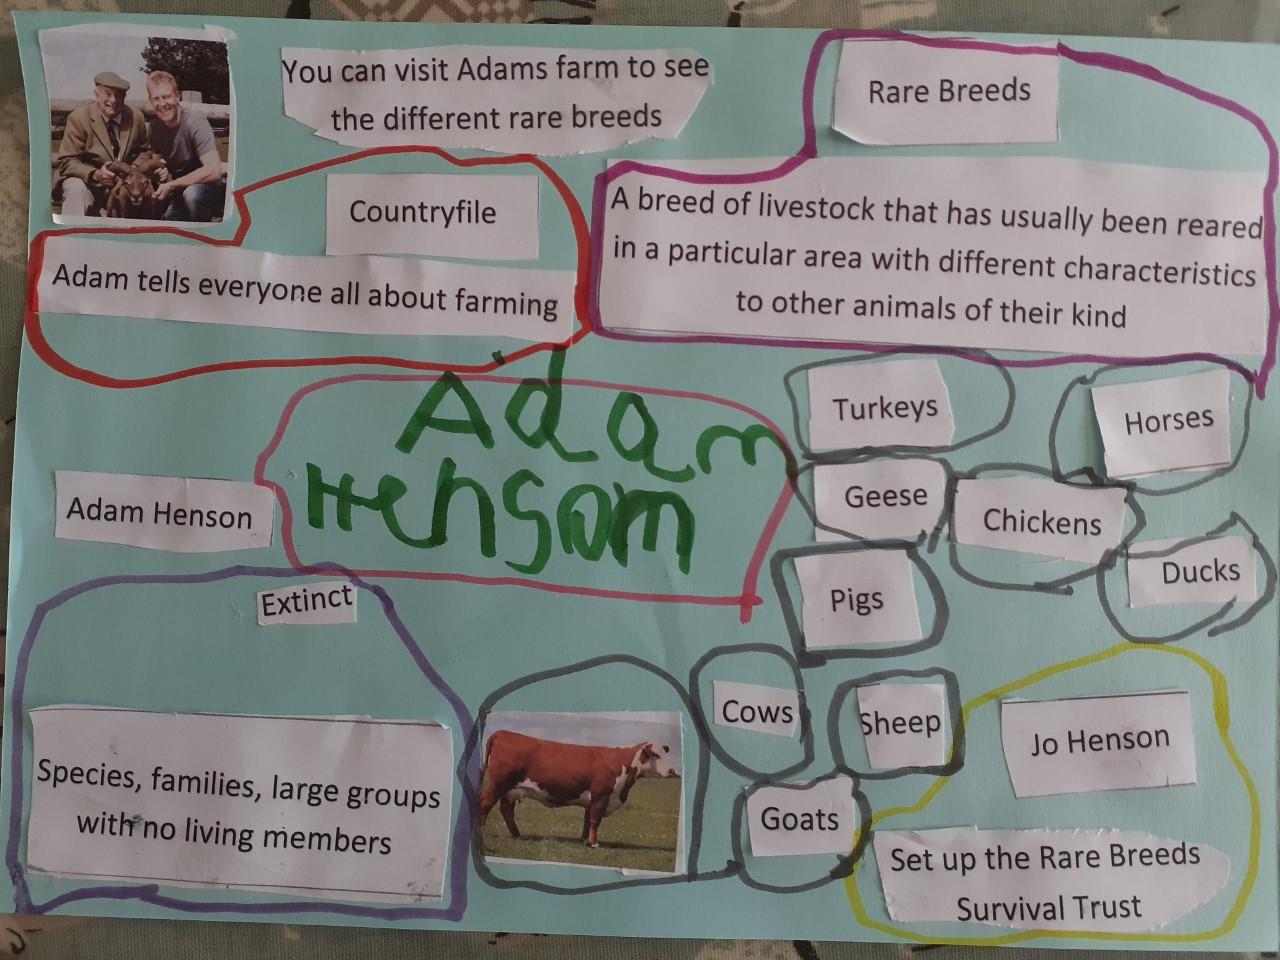 You can visit Adams farm to see
the different rare breeds
Rare Breeds
A breed of livestock that has usually been reared
in a particular area with different characteristics
to other animals of their kind
Countryfile
Adam tells everyone all about farming
Adam
Hensom
Adam Henson
Turkeys
Horses
Geese
Chickens
Ducks
Pigs
Extinct
Species, families, large groups
with no living members
Cows
Sheep
Goats
Jo Henson
Set up the Rare Breeds
Survival Trust